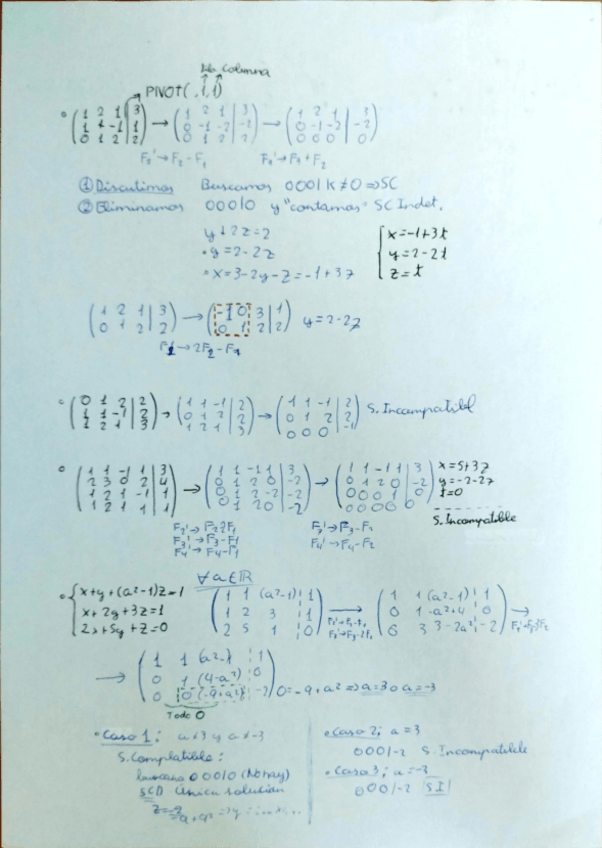 Columna
PIVOT( ,1,1)
(1 2 1 | 3; 1 1 -1 | 1; 0 1 2 | 2) → (1 2 1 | 3; 0 -1 -2 | -2; 0 1 2 | 2) → (1 2 1 | 3; 0 -1 -2 | -2; 0 0 0 | 0)
F₂' → F₂ - F₁ F₃' → F₃ + F₂
① Discutimos Buscamos 000|K≠0 ⇒ SC
② Eliminamos 000|0 y "contamos" SC Indet.
y + 2z = 2
y = 2 - 2z
x = 3 - 2y - z = -1 + 3z
{ x = -1 + 3t
y = 2 - 2t
z = t
(1 2 1 | 3; 0 1 2 | 2) → (-1 0 3 | 1; 0 1 2 | 2) y = 2 - 2z
→ 2F₂ - F₁
(0 1 2 | 2; 1 1 -1 | 2; 1 2 1 | 3) → (1 1 -1 | 2; 0 1 2 | 2; 1 2 1 | 3) → (1 1 -1 | 2; 0 1 2 | 2; 0 0 0 | -1) S. Incompatibl
(1 1 -1 1 | 3; 2 3 0 2 | 4; 1 2 1 -1 | 1; 1 2 1 1 | 1) → (1 1 -1 1 | 3; 0 1 2 0 | -2; 0 1 2 -2 | -2; 0 1 2 0 | -2) → (1 1 -1 1 | 3; 0 1 2 0 | -2; 0 0 0 1 | 0; 0 0 0 0 | 0)
x = 5 + 3z
y = -2 - 2z
t = 0
S. Incompatible
F₂' → F₂ 2F₁
F₃' → F₃ - F₁
F₄' → F₄ - F₁
F₃' → F₃ - F₂
F₄' → F₄ - F₂
∀a∈ℝ
{ x + y + (a²-1)z = 1
x + 2y + 3z = 1
2x + 5y + z = 0
(1 1 (a²-1) | 1; 1 2 3 | 1; 2 5 1 | 0) → (1 1 (a²-1) | 1; 0 1 -a²+4 | 0; 0 3 3-2a² | -2) →
→ (1 1 (a²-1) | 1; 0 1 (4-a²) | 0; 0 0 (-9+a²) | -2) 0 = -9 + a² ⇒ a = 3 o a = -3
Todo 0
• Caso 1: a ≠ 3 y a ≠ -3
S. Compatible:
buscamos 000|0 (No hay)
SCD Única solución
• Caso 2; a = 3
000|-2 S. Incompatible
• Caso 3; a = -3
000|-2 SI